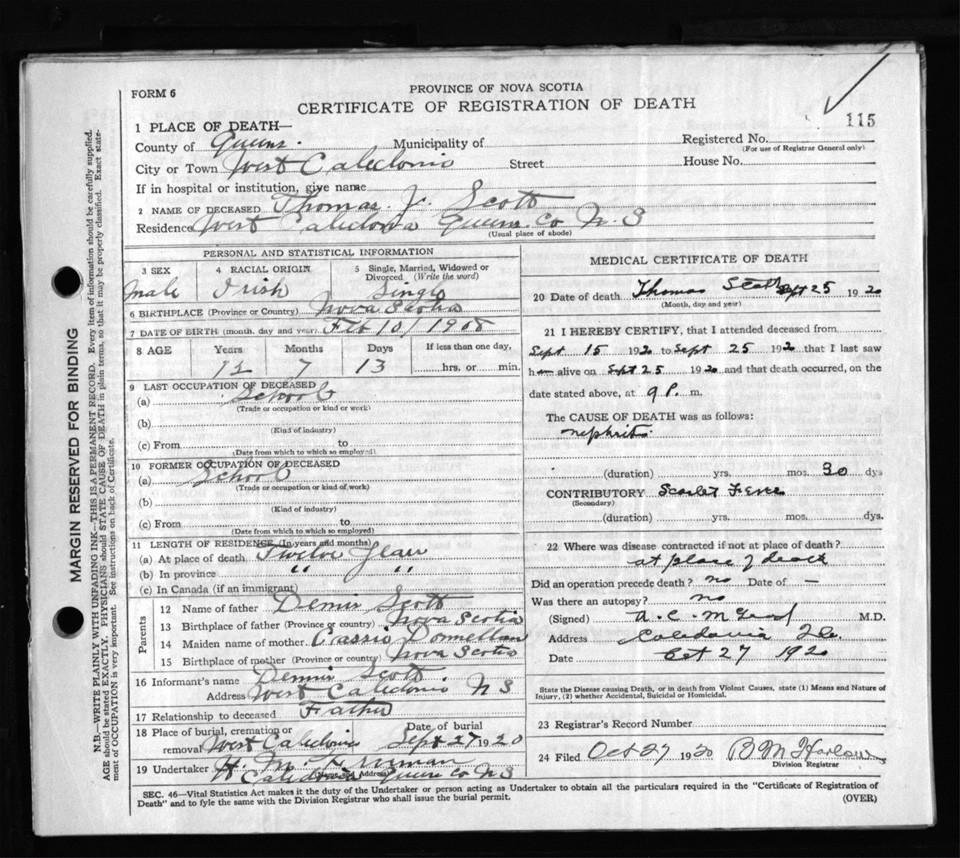 FORM 6
PROVINCE OF NOVA SCOTIA
CERTIFICATE OF REGISTRATION OF DEATH
115
1 PLACE OF DEATH—
County of Queens. Municipality of
Registered No.
(For use of Registrar General only)
City or Town West Caledonia Street
House No.
If in hospital or institution, give name
2 NAME OF DECEASED Thomas J. Scott
Residence West Caledonia Queens Co N S
(Usual place of abode)
PERSONAL AND STATISTICAL INFORMATION
3 SEX
Male
4 RACIAL ORIGIN
Irish
5 Single, Married, Widowed or
Divorced (Write the word)
Single
6 BIRTHPLACE (Province or Country) Nova Scotia
7 DATE OF BIRTH (month, day and year) Feb 10/1908
8 AGE
Years
Months
Days
If less than one day,
12
7
13
hrs. or min.
9 LAST OCCUPATION OF DECEASED
(a) School
(Trade or occupation or kind of work)
(b)
(Kind of industry)
(c) From to
(Date from which to which so employed)
10 FORMER OCCUPATION OF DECEASED
(a) School
(Trade or occupation or kind of work)
(b)
(Kind of industry)
(c) From to
(Date from which to which so employed)
11 LENGTH OF RESIDENCE (In years and months)
(a) At place of death Twelve Years
(b) In province " "
(c) In Canada (if an immigrant)
Parents
12 Name of father Dennis Scott
13 Birthplace of father (Province or country) Nova Scotia
14 Maiden name of mother Cassie Donnellan
15 Birthplace of mother (Province or country) Nova Scotia
16 Informant's name Dennis Scott
Address West Caledonia N S
17 Relationship to deceased Father
18 Place of burial, cremation or
removal West Caledonia
Date of burial
Sept 27 1920
19 Undertaker H. M.
(Name and Address)
Caledonia Queens Co N S
MEDICAL CERTIFICATE OF DEATH
20 Date of death Thomas Scott Sept 25 1920
(Month, day and year)
21 I HEREBY CERTIFY, that I attended deceased from
Sept 15 1920 to Sept 25 1920 that I last saw
him alive on Sept 25 1920 and that death occurred, on the
date stated above, at 9 P. m.
The CAUSE OF DEATH was as follows:
nephritis
(duration) yrs. mos. 30 dys
CONTRIBUTORY Scarlet Fever
(Secondary)
(duration) yrs. mos. dys.
22 Where was disease contracted if not at place of death?
at place of death
Did an operation precede death? no Date of —
Was there an autopsy? no
(Signed) M.D.
Address Caledonia
Date Oct 27 1920
State the Disease causing Death, or in death from Violent Causes, state (1) Means and Nature of
Injury, (2) whether Accidental, Suicidal or Homicidal.
23 Registrar's Record Number
24 Filed Oct 27 1920 B M Harlow
Division Registrar
SEC. 46—Vital Statistics Act makes it the duty of the Undertaker or person acting as Undertaker to obtain all the particulars required in the "Certificate of Registration of
Death" and to fyle the same with the Division Registrar who shall issue the burial permit.
(OVER)
MARGIN RESERVED FOR BINDING
N.B.—WRITE PLAINLY WITH UNFADING INK—THIS IS A PERMANENT RECORD. Every item of information should be carefully supplied.
AGE should be stated EXACTLY. PHYSICIANS should STATE CAUSE OF DEATH in plain terms, so that it may be properly classified. Exact state-
ment of OCCUPATION is very important. See instructions on back of Certificate.